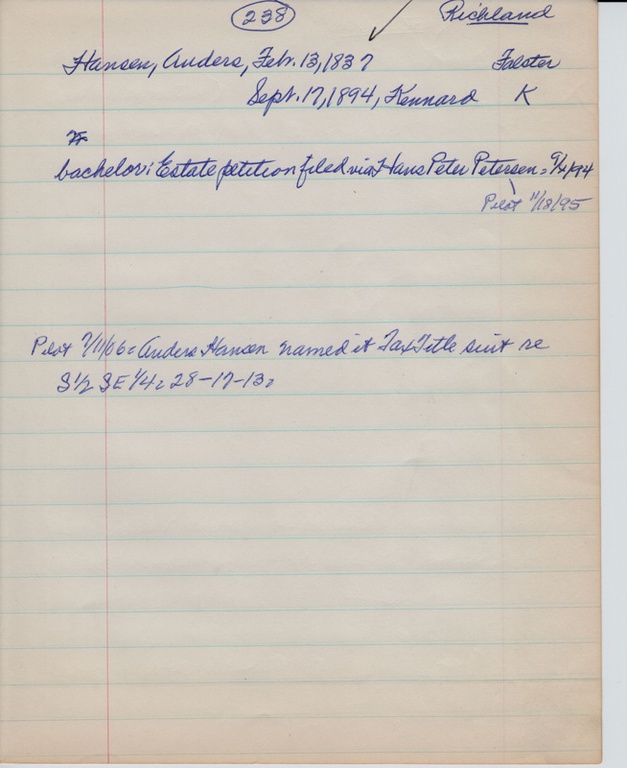 238
Richland
Hansen, Anders, Feb. 13, 1837 Falster
Sept. 17, 1894, Kennard K
bachelor: Estate petition filed via Hans Peter Petersen = 94
Pilot 11/18/95
Pilot 7/11/06 = Anders Hansen named it Tax Title suit re
S 1/2 SE 1/4 28-17-13